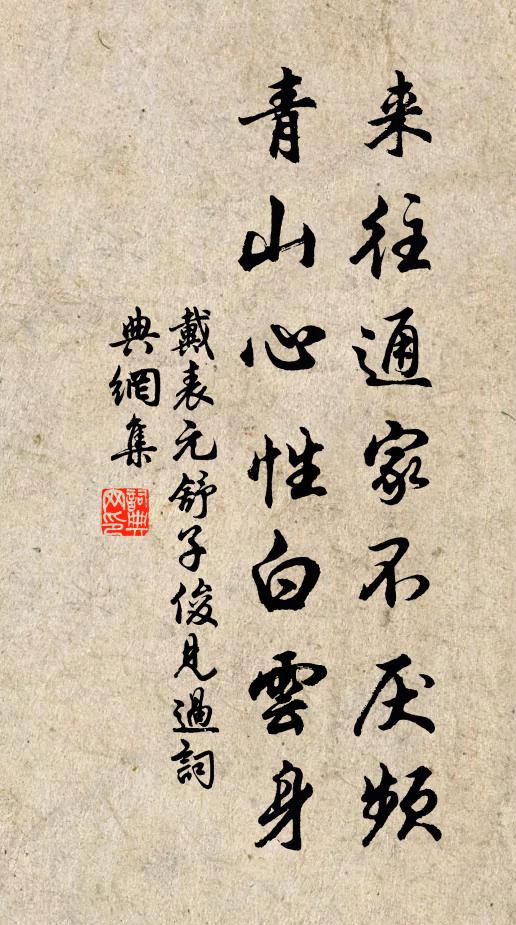 来往通家不厌频
青山心性白雲身
戴表元舒子俊見過詞
典網集
詞典
网印